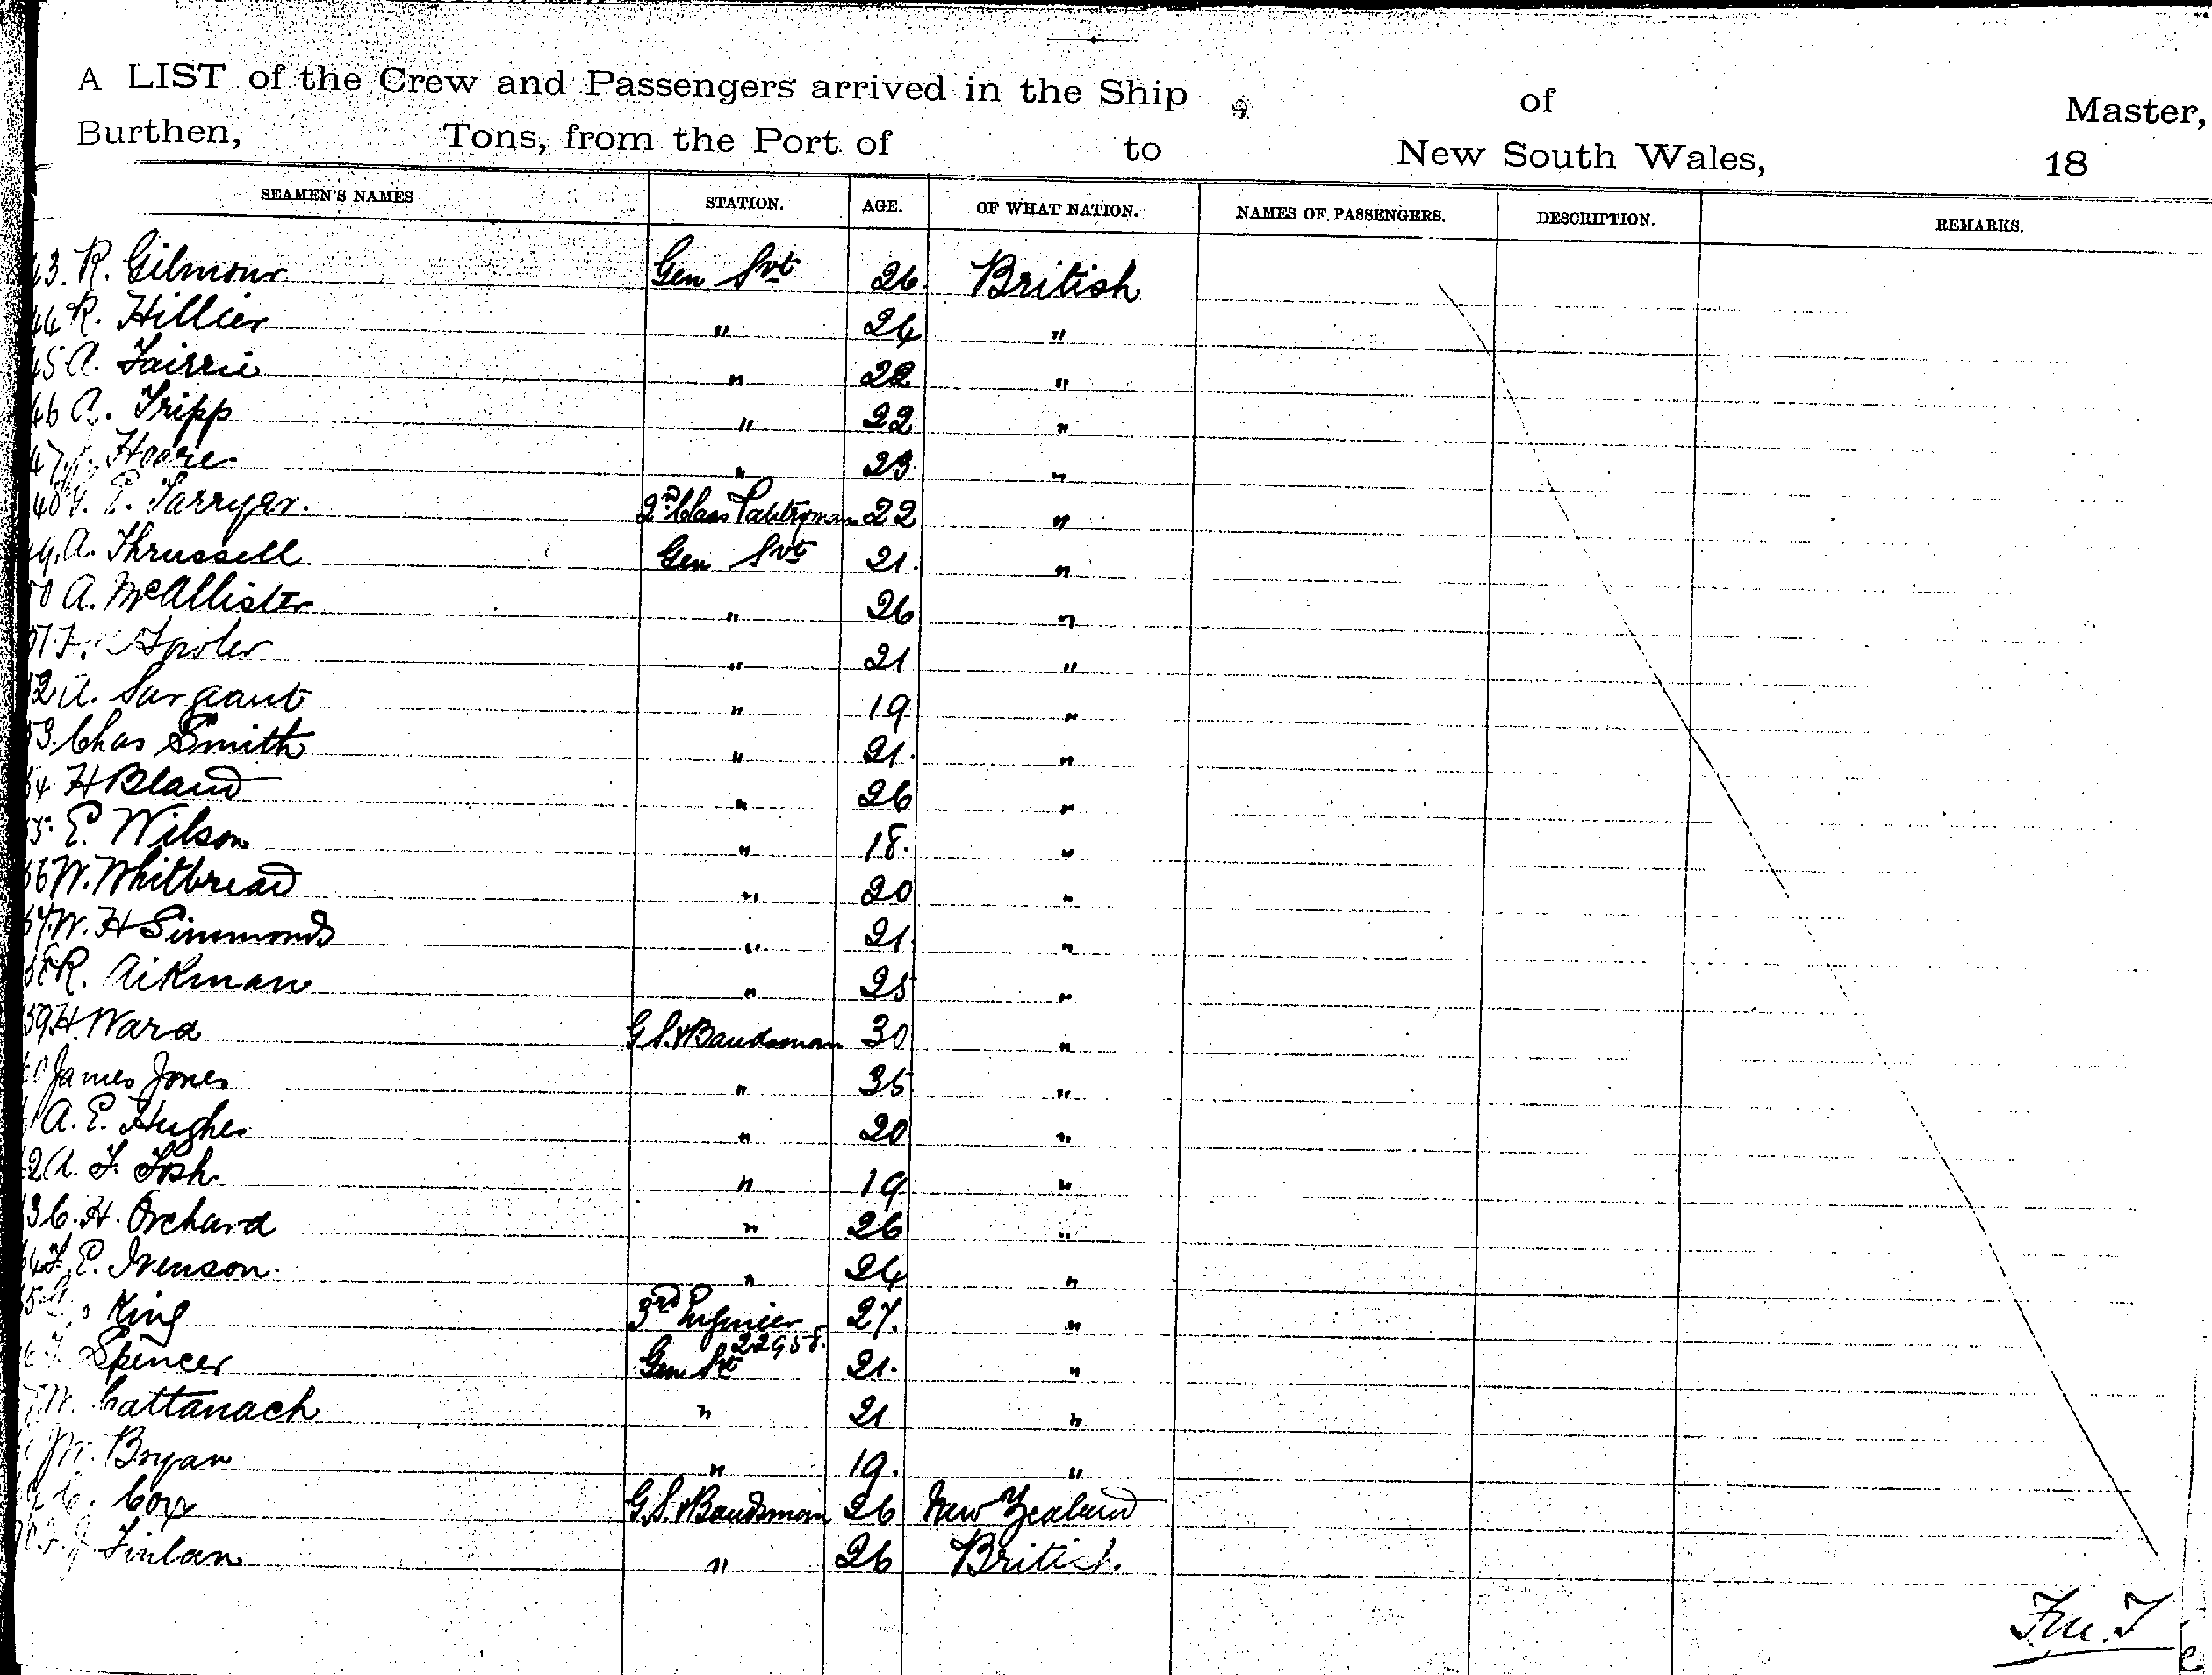 A LIST of the Crew and Passengers arrived in the Ship of Master,
Burthen, Tons, from the Port of to New South Wales, 18
SEAMEN'S NAMES STATION. AGE. OF WHAT NATION. NAMES OF PASSENGERS. DESCRIPTION. REMARKS.
43. R. Gilmour Gen Svt 26. British
44 R. Hillier " 24 "
45 A. Fairrie " 22 "
46 A. Tripp " 22 "
47 Hoare " 23. "
48 E. Tarryer. 2nd Class Pantryman 22 "
49. A. Thrussell Gen Svt 21. "
50 A. McAllister " 26 "
51 F. Fowler " 21 "
52 A. Sargant " 19 "
53. Chas Smith " 21. "
54 H Bland " 26 "
55 E. Wilson " 18. "
56 W. Whitbread " 20 "
57. W. H Simmonds " 21. "
58 R. Aikman " 25 "
59 H. Ward G.S. & Bandsman 30 "
60 James Jones " 35 "
61 A. E. Hughes " 20 "
62 A. F. Tosh " 19 "
63 C. H. Orchard " 26 "
64 F. E. Ivenson. " 24 "
65 King 3rd Engineer 27. "
66 Spencer Gen Svt 22958. 21. "
67 W. Cattanach " 21 "
W. Bryan " 19. "
C. Cox G.S. & Bandsman 26 New Zealand
J Finlan " 26 British